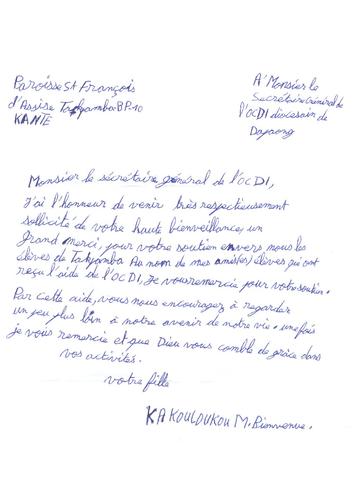 Paroisse St François
d'Assise Takpamba B.P.10
KANTE
A' Monsier le
Secrétaire Général de
l'OCDI diocesain de
Dapaong
Monsieur le secrétaire général de l'OCDI,
J'ai l'honneur de venir très respectieusement
sollicité de votre haute bienveillance, un
Grand merci, pour votre soutien envers nous les
élèves de Takpamba Au nom de mes ami(tes) élèves qui ont
reçu l'aide de l'OCDI, Je vous remercie pour votre soutien.
Par cette aide, vous nous encouragez à regarder
un peu plus loin à notre avenir de notre vie. une fois
je vous remercie et que Dieu vous comble de grâce dans
vos activités.
votre fille
KAKOULOUKOU M. Bienvenue.